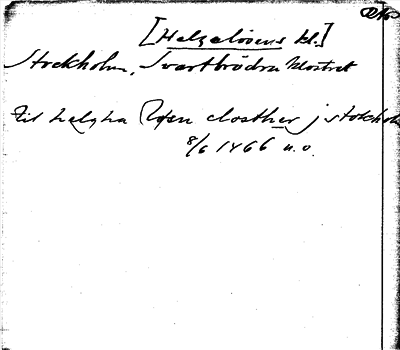 [Helgelösens kl.]
Stockholm, Svartbrödra klostret
til helgha losen closther j stokholm
8/6 1466 u.o.